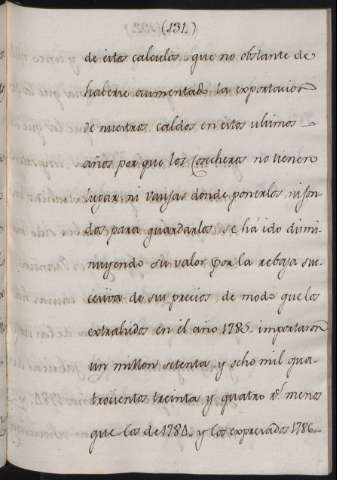 (131.)
de estos calculos, que no obstante de
haberse aumentado la exportacion
de nuestros caldos en estos ultimos
años por que los Cosecheros no tienen
lugar, ni vasijas donde ponerlos, ni fon-
dos para guardarlos, se há ido dismi-
nuyendo su valor por la rebaja suc-
cesiva de sus precios, de modo que los
extrahidos en el año 1785 importaron
un millon setenta, y ocho mil qua-
trocientos treinta y quatro r.ˢ menos
que los de 1784, y los expresados 1786